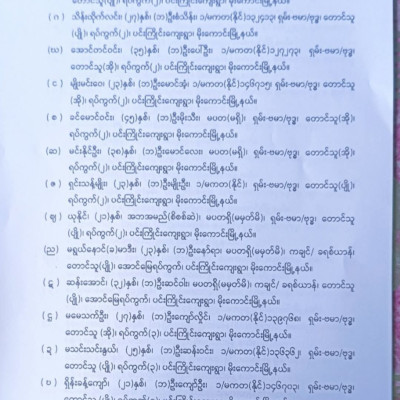 တောင်သူ(ပျို)၊ ရပ်ကွက်(၂)၊ ပင်းကြိုင်းကျေးရွာ၊ မိုးကောင်းမြို့နယ်။
( ဂ ) သိန်းထိုက်လင်း၊ (၂၇)နှစ်၊ (ဘ)ဦးစံသိန်း၊ ၁/မကတ(နိုင်)၁၃၂၄၁၃၊ ရှမ်း-ဗမာ/ဗုဒ္ဓ၊ တောင်သူ
(ပျို)၊ ရပ်ကွက်(၂)၊ ပင်းကြိုင်းကျေးရွာ၊ မိုးကောင်းမြို့နယ်။
( ဃ ) အောင်တင်ဝင်း၊ (၃၅)နှစ်၊ (ဘ)ဦးပေါ်ဦး၊ ၁/မကတ(နိုင်)၁၂၇၂၇၃၊ ရှမ်း-ဗမာ/ဗုဒ္ဓ၊
တောင်သူ(အို)၊ ရပ်ကွက်(၂)၊ ပင်းကြိုင်းကျေးရွာ၊ မိုးကောင်းမြို့နယ်။
( င ) မျိုးမင်းဝေ၊ (၂၃)နှစ်၊ (ဘ)ဦးမောင်အုံ၊ ၁/မကတ(နိုင်)၁၄၆၇၁၅၊ ရှမ်း-ဗမာ/ဗုဒ္ဓ၊ တောင်သူ
(အို)၊ ရပ်ကွက်(၂)၊ ပင်းကြိုင်းကျေးရွာ၊ မိုးကောင်းမြို့နယ်။
( စ ) ခင်မောင်ဝင်း၊ (၄၅)နှစ်၊ (ဘ)ဦးမိုးသီး၊ မပတ(မရှိ)၊ ရှမ်း-ဗမာ/ဗုဒ္ဓ၊ တောင်သူ(အို)၊
ရပ်ကွက်(၂)၊ ပင်းကြိုင်းကျေးရွာ၊ မိုးကောင်းမြို့နယ်။
(ဆ) မင်းနိုင်ဦး၊ (၃၈)နှစ်၊ (ဘ)ဦးမောင်လေး၊ မပတ(မရှိ)၊ ရှမ်း-ဗမာ/ဗုဒ္ဓ၊ တောင်သူ(အို)၊
ရပ်ကွက်(၂)၊ ပင်းကြိုင်းကျေးရွာ၊ မိုးကောင်းမြို့နယ်။
( ဇ ) ရှင်းသန့်မျိုး၊ (၂၃)နှစ်၊ (ဘ)ဦးမျိုးဦး၊ ၁/မကတ(နိုင်)၊ ရှမ်း-ဗမာ/ဗုဒ္ဓ၊ တောင်သူ(ပျို)၊
ရပ်ကွက်(၂)၊ ပင်းကြိုင်းကျေးရွာ၊ မိုးကောင်းမြို့နယ်။
( ဈ) ယုနိုင်၊ (၂၁)နှစ်၊ အဘအမည်(စိစစ်ဆဲ)၊ မပတရှိ(မမှတ်မိ)၊ ရှမ်း-ဗမာ/ဗုဒ္ဓ၊ တောင်သူ
(ပျို)၊ ရပ်ကွက်(၂)၊ ပင်းကြိုင်းကျေးရွာ၊ မိုးကောင်းမြို့နယ်။
(ည) မရွယ်နောင်(ခ)မာဒီး၊ (၂၃)နှစ်၊ (ဘ)ဦးနော်ရာ၊ မပတရှိ(မမှတ်မိ)၊ ကချင်/ ခရစ်ယာန်၊
တောင်သူ(ပျို)၊ အောင်မြေရပ်ကွက်၊ ပင်းကြိုင်းကျေးရွာ၊ မိုးကောင်းမြို့နယ်။
( ဋ ) ဆန်းအောင်၊ (၃၂)နှစ်၊ (ဘ)ဦးဆင်ဝါး၊ မပတရှိ(မမှတ်မိ)၊ ကချင်/ ခရစ်ယာန်၊ တောင်သူ
(ပျို)၊ အောင်မြေရပ်ကွက်၊ ပင်းကြိုင်းကျေးရွာ၊ မိုးကောင်းမြို့နယ်။
( ဌ ) မမေသက်ဦး၊ (၂၇)နှစ်၊ (ဘ)ဦးကျော်လှိုင်၊ ၁/မကတ(နိုင်)၁၃၉၇၆၈၊ ရှမ်း-ဗမာ/ဗုဒ္ဓ၊
တောင်သူ (အို)၊ ရပ်ကွက်(၃)၊ ပင်းကြိုင်းကျေးရွာ၊ မိုးကောင်းမြို့နယ်။
( ဍ ) မသင်းသင်းနွယ်၊ (၂၅)နှစ်၊ (ဘ)ဦးဆန်းဝင်း၊ ၁/မကတ(နိုင်)၁၃၆၃၆၂၊ ရှမ်း-ဗမာ/ဗုဒ္ဓ၊
တောင်သူ(ပျို)၊ ရပ်ကွက်(၃)၊ ပင်းကြိုင်းကျေးရွာ၊ မိုးကောင်းမြို့နယ်။
( ဎ ) ရှိန်းခန့်ကျော်၊ (၂၁)နှစ်၊ (ဘ)ဦးကျော်ဦး၊ ၁/မကတ(နိုင်)၁၄၆၇၀၃၊ ရှမ်း-ဗမာ/ဗုဒ္ဓ၊